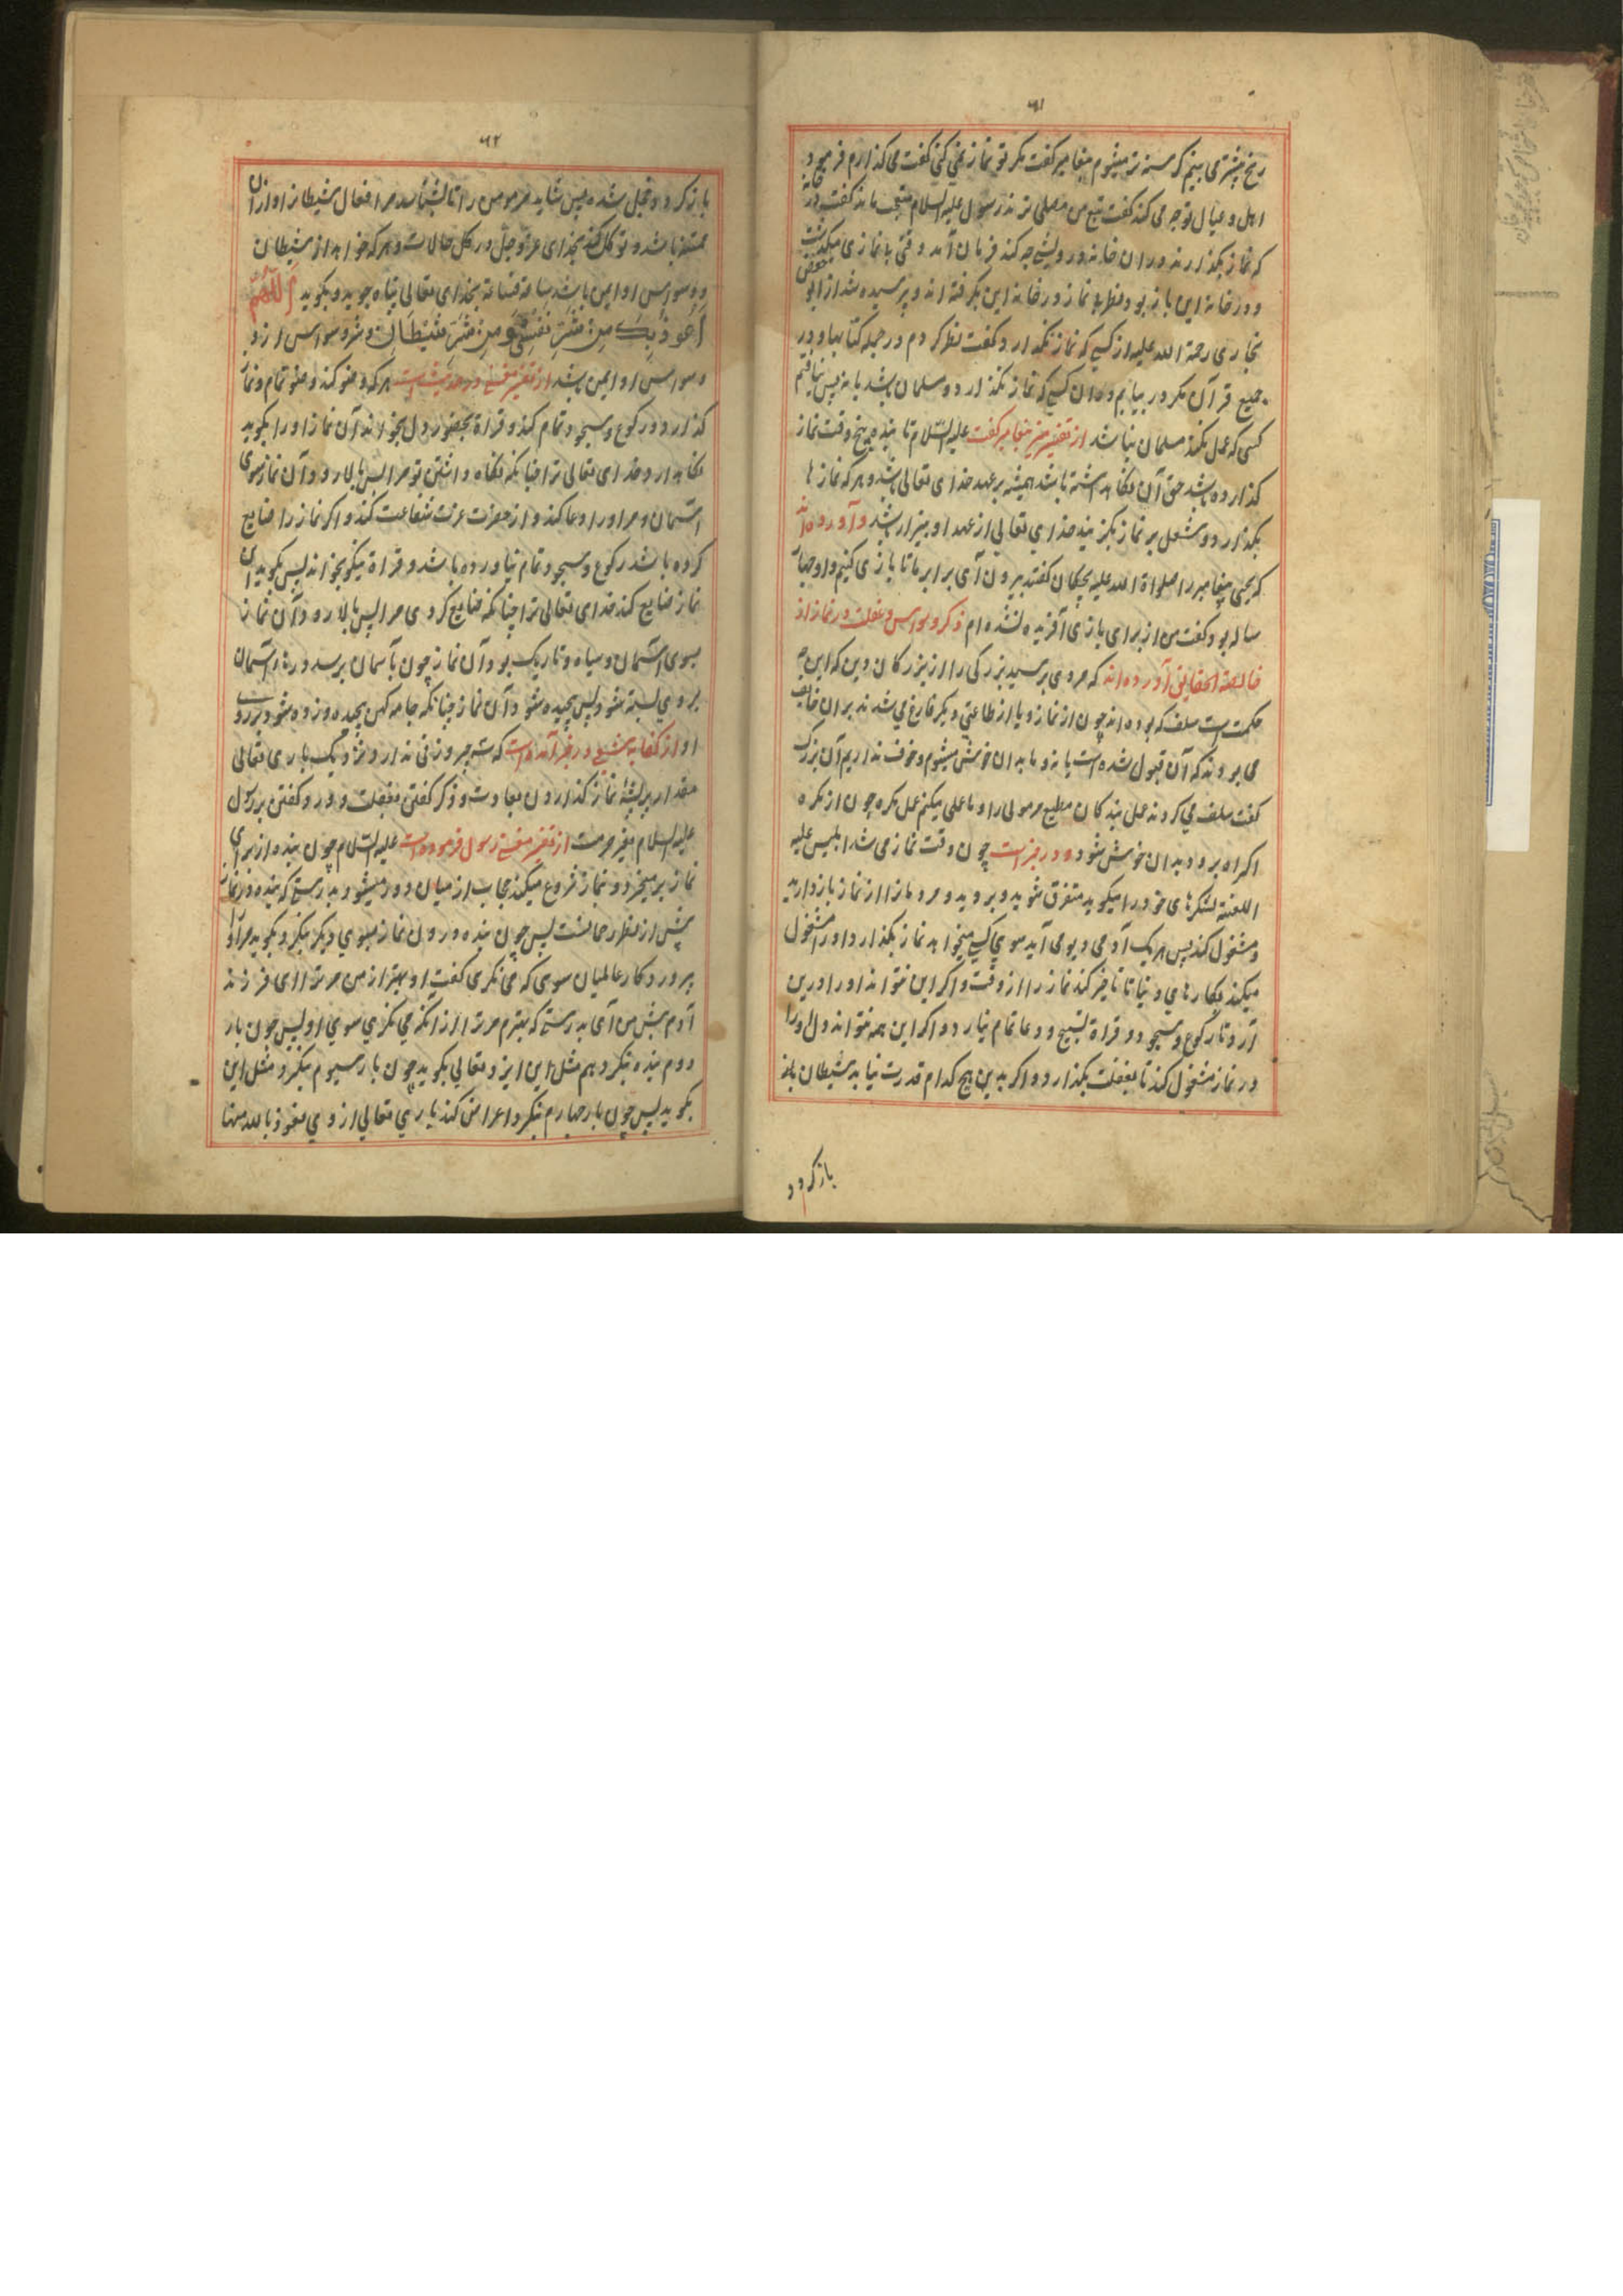 ۶۱
رنج پیشتر می بینم گرسنه تر میشوم پیغامبر گفت مگر تو نماز نمی کنی گفت می گذارم فرمود
اهل و عیال توجه می کند گفت تبع من مصلی تر ند رسول علیه السلام متعجب ماند گفت در خانه
که نماز بگذارند در ان خانه درویشی چه کند فرمان آمد وقتی بانمازی میگذشت
و در خانه این باز بود نظر بی نماز در خانه این بگرفته اند و پرسیده شد از ابو
نجاری رحمة الله علیه از کسی که نماز نگذارد گفت نظر کردم در جمله کتابها و در
جمیع قرآن مگر در بیابم وه ان کسی که نماز نگذارد و مسلمان باشد یا نه پس نیافتم
کسی که عمل نکند مسلمان نباشد از تفسیر منیر پیغامبر گفت علیه السّلام تا بنده پنج وقت نماز
گذارده باشد حق آن نگاه داشته باشد همیشه بر عهد خدای تعالی باشد و هر که نمازها
بگذارد و شغل بر نماز بگزیند خدای تعالی از عهد او بیزار باشد و آورده اند
که یحیی پیغامبر را صلواة الله علیه بچگان گفتند بیرون آی برابر ما تا بازی کنیم و او چهار
ساله بود گفت من از برای بازی آفریده نشده ام ذکر وسواس و غفلت در نماز از
خالصة الحقایق آورده اند که مردی پرسید بزرگی را از بزرگان دین که این چه
حکمت است سلف که بوده اند چون از نماز و یا از طاعتی دیگر فارغ می شدند بر ان خایف
می بودند که آن قبول شده است یا نه و ما بدان خوش میشوم و خوف نداریم آن بزرگ
گفت سلف می کردند عمل بندگان مطیع مر مولی را و ما عملی میکنم عمل مکره چون از مکره
اکراه برود بدان خوش شود و در خبر است چون وقت نماز می شد ابلیس علیه
اللعنة لشکرهای خود را میگوید متفرق شوید و بروید و مردمان را از نماز بازدارید
و مشغول کند پس هر یک آدمی دیومی آید سوی کسی میخواهد نماز بگذارد او را مشغول
میکند بکارهای دنیا تا تاخیر کند نماز را از وقت و اگر این نتواند او را درین
آرد تا رکوع و سجود و قراة تسبیح و دعا تمام نیارد و اگر این همه نتواند دل او را
در نماز مشغول کند تا بغفلت بگذارد و اگر بدین هیچ کدام قدرت نیابد شیطان باز
باز گردد
۶۲
باز گردد و خجل شده پس شاید مر مومن را تا بشناسد مر افعال شیطان را و از آن
ممتنع باشد و توکل کند بخدای عزّ و جلّ در کل حالات و هر که خواهد از شیطان
و وسواس او ایمن باشد بخدای تعالی پناه جوید و بگوید اللّٰهُمَّ
اَعُوذُ بِكَ مِنْ شَرِّ نَفْسِي وَ مِنْ شَرِّ شَیْطَانٍ و شر وسواس از و
وسواس او ایمن باشد از تفسیر مغنی در حدیث است هر که وضو کند وضو تمام و نماز
گذارد و رکوع و سجود تمام کند و قراة بحضور دل بخواند آن نماز او را بگوید
نگاهدارد خدای تعالی ترا چنانکه نگاه داشتی تو مرا پس بالا رود آن نماز سوی
آسمان و مر او را دعا کند و از حضرت عزت شفاعت کند و اگر نماز را ضایع
کرده باشد رکوع و سجود تمام نیاورده باشد و قراة نیکو بخواند پس بگوید ان
نماز ضایع کند خدای تعالی ترا چنانکه ضایع کردی مرا پس بالا رود آن نماز
سوی آسمان و سیاه و تاریک بود آن نماز چون بآسمان برسد درهای آسمان
بروی بسته شود پس پیچیده شود آن نماز چنانکه جامه کهن پیچیده و زده شود بر روی
او از کفایه شعبی در خبر آمده است که سه چیز وزنی ندارد نزدیک باری تعالی
مقدار پر پشهٔ نماز گذاردن بعادت و ذکر گفتن بغفلت و درود گفتن بر رسول
علیه السلام بغیر حرمت از تفسیر مغنی رسول فرموده است علیه السّلام چون بنده از برای
نماز بر میخیزد و بنماز شروع میکند حجاب از میان دور میشود بدرستی که بنده در نماز
پیش از نظر رحمانست پس چون بنده درون نماز سوی دیگر بنگرد بگوید مر او را
پروردگار عالمیان سوی که می نگری گفت او بهتر از من مر ترا ای فرزند
آدم پیش من آی بدرستی که بهترم مر ترا از آنکه می نگری سوی او پس چون بار
دوم بنده بنگرد هم مثل این ایزد تعالی بگوید چون بار سیوم بنگرد مثل این
بگوید پس چون بار چهارم بنگرد اعراض کند باری تعالی از وی نعوذ بالله منها